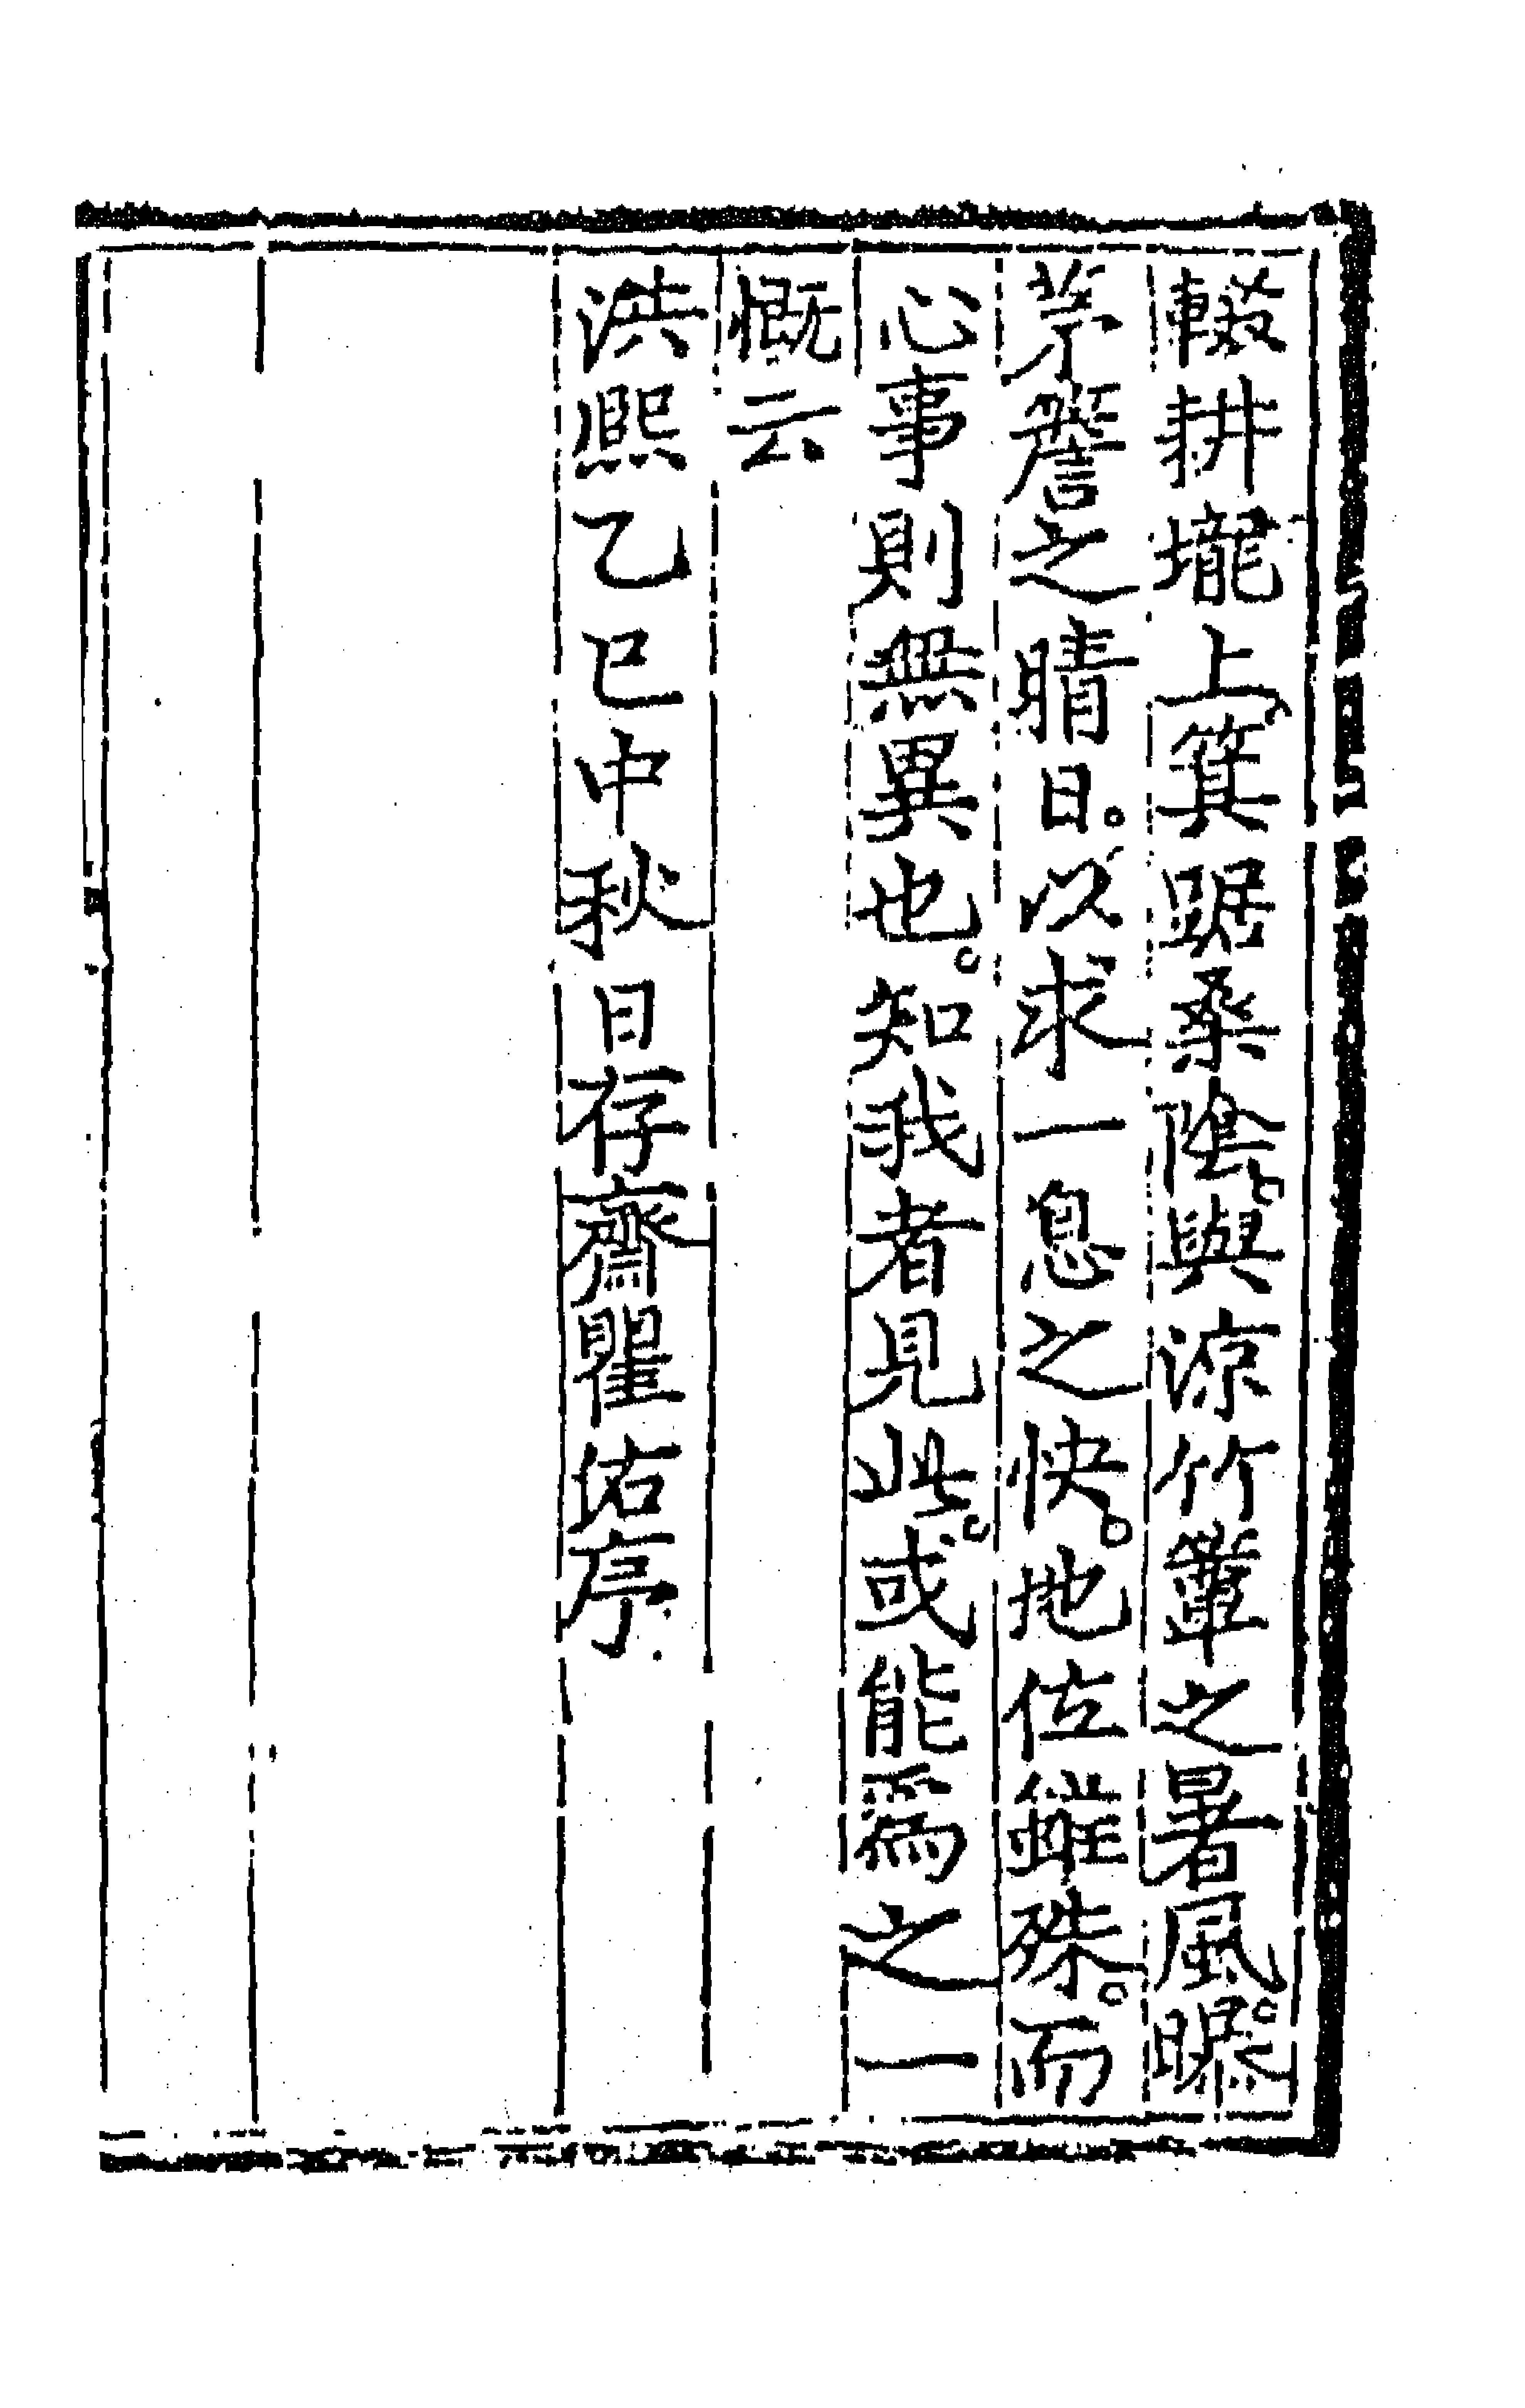 輟耕壠上、箕踞桑陰。與涼竹簟之暑風。曝
茅簷之晴日。以求一息之快。地位雖殊。而
心事則無異也。知我者見此。或能爲之一
慨云
洪熙乙巳中秋日存齋瞿佑序